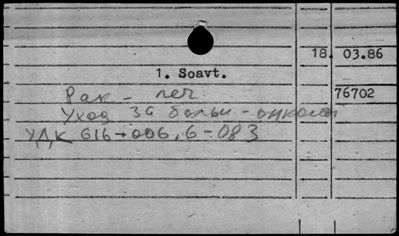 18. 03.86
1. Soavt.
Рак - леч 76702
Уход за больн - онколог
УДК 616-006.6-083